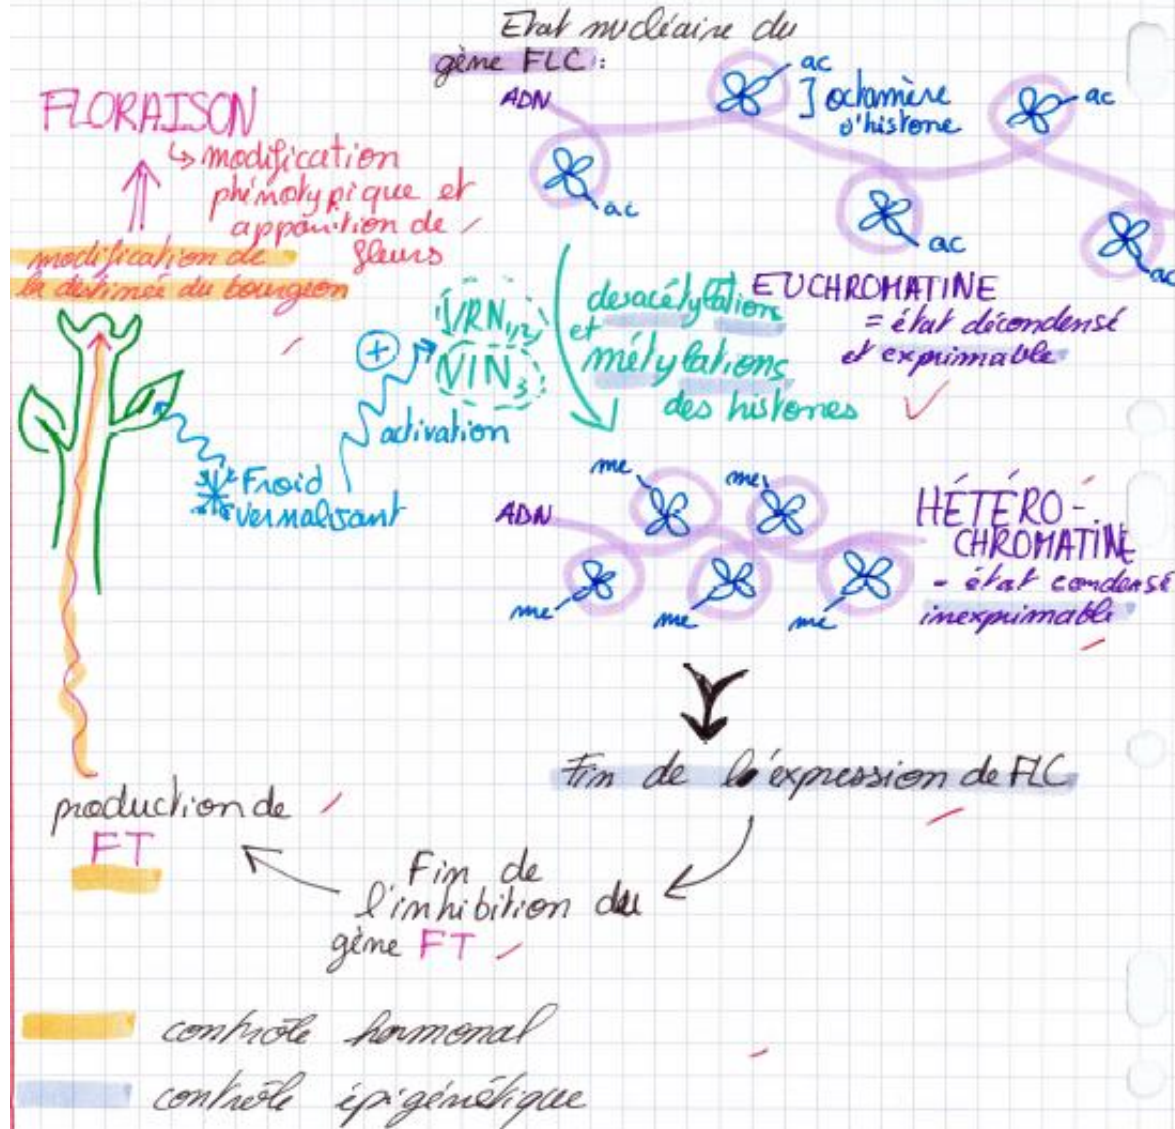 Etat nucléaire du
gène FLC :
ADN
ac
] octamère
d'histone
ac
ac
ac
ac
FLORAISON
↳ modification
phénotypique et
apparition de
fleurs
modification de
la destinée du bourgeon
VRN1/2
VIN3
+
activation
Froid
vernalisant
desacétylations
et
métylations
des histones
EUCHROMATINE
= état décondensé
et exprimable
ADN
me
me
me
me
me
HÉTÉRO-
CHROMATINE
= état condensé
inexprimable
Fin de l'expression de FLC
Fin de
l'inhibition du
gène FT
production de
FT
contrôle hormonal
contrôle épigénétique